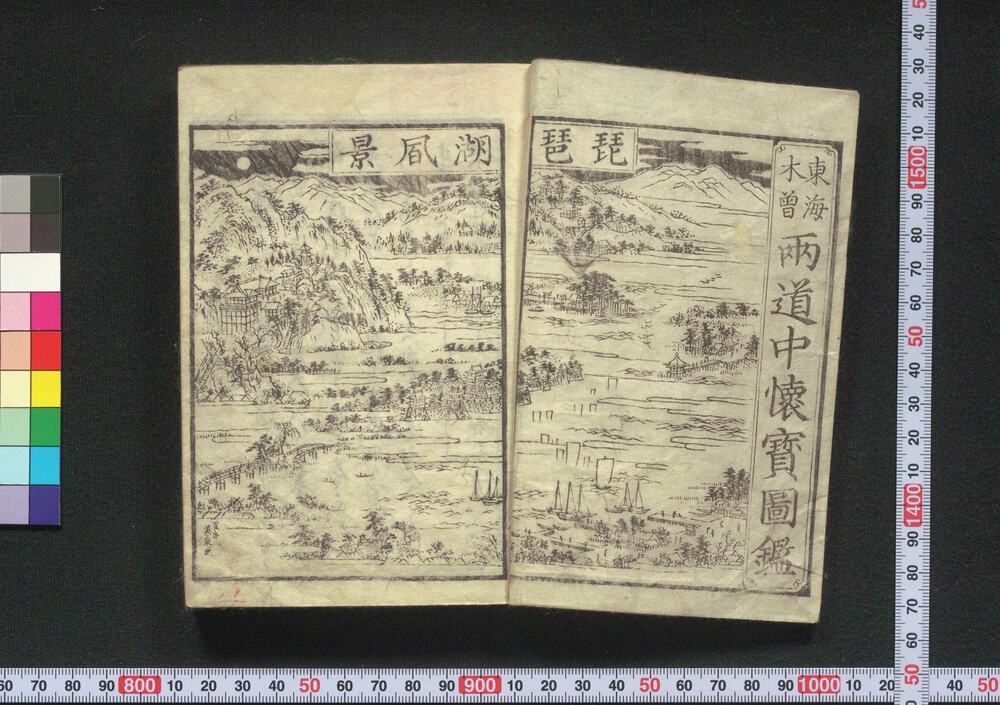 東海
木曾
兩道中懐寶圖鑑
琵琶
湖風景
60 70 80 90 800 10 20 30 40 50 60 70 80 90 900 10 20 30 40 50 60 70 80 90 1000 10 20 30 40 50
50 40 30 20 10 1500 90 80 70 60 50 40 30 20 10 1400 90 80 70 60 50